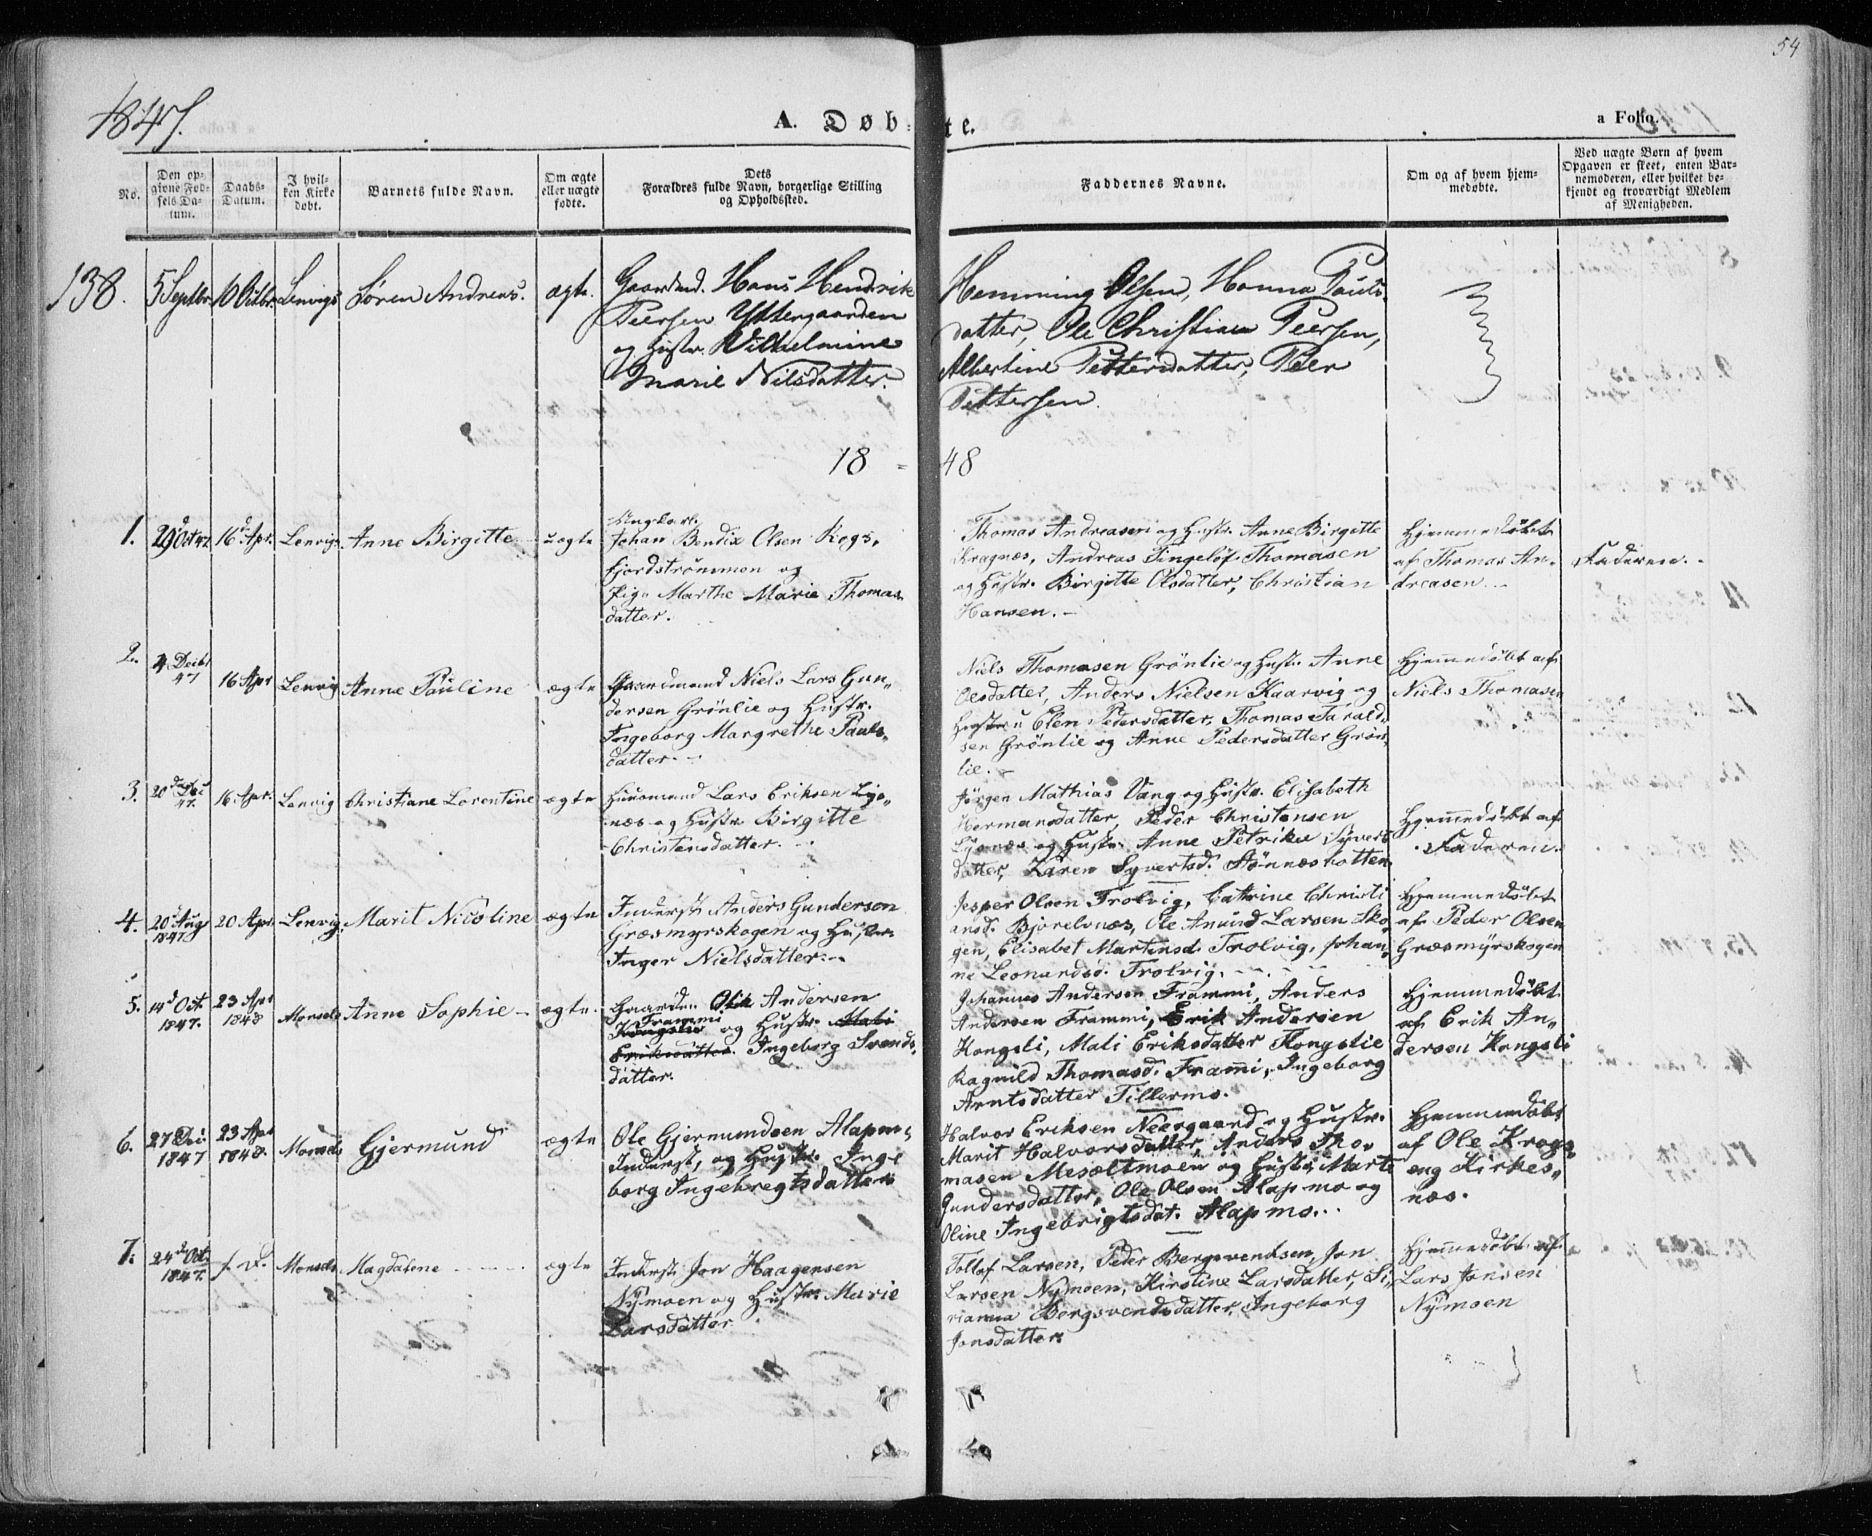 54
1847.
A. Døb-te.
a Folio.
No.
Den op-
givne Fød-
sels Da-
tum.
Daabs-
Datum.
I hvil-
ken Kirke
døbt.
Barnets fulde Navn.
Om ægte
eller uægte
fødte.
Dets
Forældres fulde Navn, borgerlige Stilling
og Opholdssted.
Faddernes Navne.
Om og af hvem hjem-
medøbte.
Ved uægte Børn af hvem
Opgaven er skeet, enten Bar-
nemoderen, eller hvilket be-
kjendt og troværdigt Medlem
af Menigheden.
138. 5 Septbr 10 Octbr Lenvigs Søren Andreas. ægte.
Gaardmd. Hans Hendrik
Peersen Yttergaarden
og Hustr. Vilhelmine
Marie Nilsdatter.
Hemming Olsen, Hanna Pauls
datter, Ole Christian Peersen,
Albertine Pettersdatter, Peer
Pettersen.
18 - 48
1. 29 Oct 47 16 Apr. Lenvig Anne Birgitte uægte
Ungkarl
Johan Bendix Olsen Regs,
fjordstrømmen og
Pige Marthe Marie Thomas
datter.
Thomas Andreasen og Hustr. Anne Birgitte
Kragnæs, Andreas Tingeløf Thomasen
og Hustr. Birgitte Olsdatter, Christian
Hansen.
Hjemmedøbt
af Thomas An-
dreasen.
Faderen.
2. 4 Decbr 47 16 Apr Lenvig Anne Pauline ægte
Gaardmand Niels Lars Gun,,
dersen Grønlie og Hustr.
Ingeborg Margrethe Pauls,,
datter.
Niels Thomasen Grønlie og Hustr. Anne
Olsdatter, Anders Nielsen Kaarvig og
Hustru Elen Pedersdatter, Thomas Tarald,,
sen Grønlie og Anne Pedersdatter Grøn
lie.
Hjemmedøbt af
Niels Thomasen
3. 20 Dec 47. 16 Apr. Lenvig Christiane Lorentine ægte
Huusmand Lars Eriksen Lys,,
næs og Hustr. Birgitte
Christensdatter.
Jørgen Mathias Vang og Hustr. Elisabeth
Hermansdatter, Peder Christensen
Lysnæs og Hustr. Anne Petrikke Syvert
datter, Karen Syvertsd. Stønnesbotten
Hjemmedøbt af
Faderen.
4. 20 Aug 1847 20 Apr. Lenvig Marit Nicoline ægte
Inderst Anders Gundersen
Græsmyrskogen og Hustr.
Inger Nielsdatter.
Jesper Olsen Trolvig, Catrine Christi
ansd. Bjorelvnæs, Ole Amund Larsen Sko
gen, Elisabet Martinsd. Trolvig, Johan,
ne Leonardsd. Trolvig.
Hjemmedøbt
af Peder Olsen
Græsmyrskogen
5. 14 Oct 1847. 23 Apr 1848 Monsels Anne Sophie ægte.
Gaardm. Erik Andersen
Frammi
Kongslie og Hustr. Mali
Eriksdatter. Ingeborg Svends,
datter.
Johannes Andersen Frammi, Anders
Andersen Frammi, Erik Andersen
Kongsli, Mali Eriksdatter Kongslie
Ragnild Thomasd. Frammi, Ingeborg
Arntsdatter Tillermo.
Hjemmedøbt
af Erik An,,
dersen Kongsli
6. 27 Dec 1847 23 Apr 1848. Monsels Gjermund ægte
Ole Gjermundsen Alapmo,
Inderst, og Hustr. Inge
borg Ingebregtsdatter
Halvor Eriksen Neergaard og Hustr.
Marit Halvorsdatter, Anders Tho,,
masen Mesæltmoen og Hustr. Marte
Gundersdatter, Ole Olsen Alapmo og
Oline Ingebrigtsdat. Alapmo.
Hjemmedøbt
af Ole Krogs,
eng Kirkes,,
næs.
7. 24 Oct 1847. s. D. Monsels Magdalene ægte
Inderst Jon Haagensen
Nymoen og Hustr. Marie
Larsdatter
Tollef Larsen, Peder Bergsvendsen, Jon
Larsen Nymoen, Kirstine Larsdatter, Si,,
rianna Bergsvendsdatter, Ingeborg
Jonsdatter
Hjemmedøbt af
Lars Jonsen
Nymoen